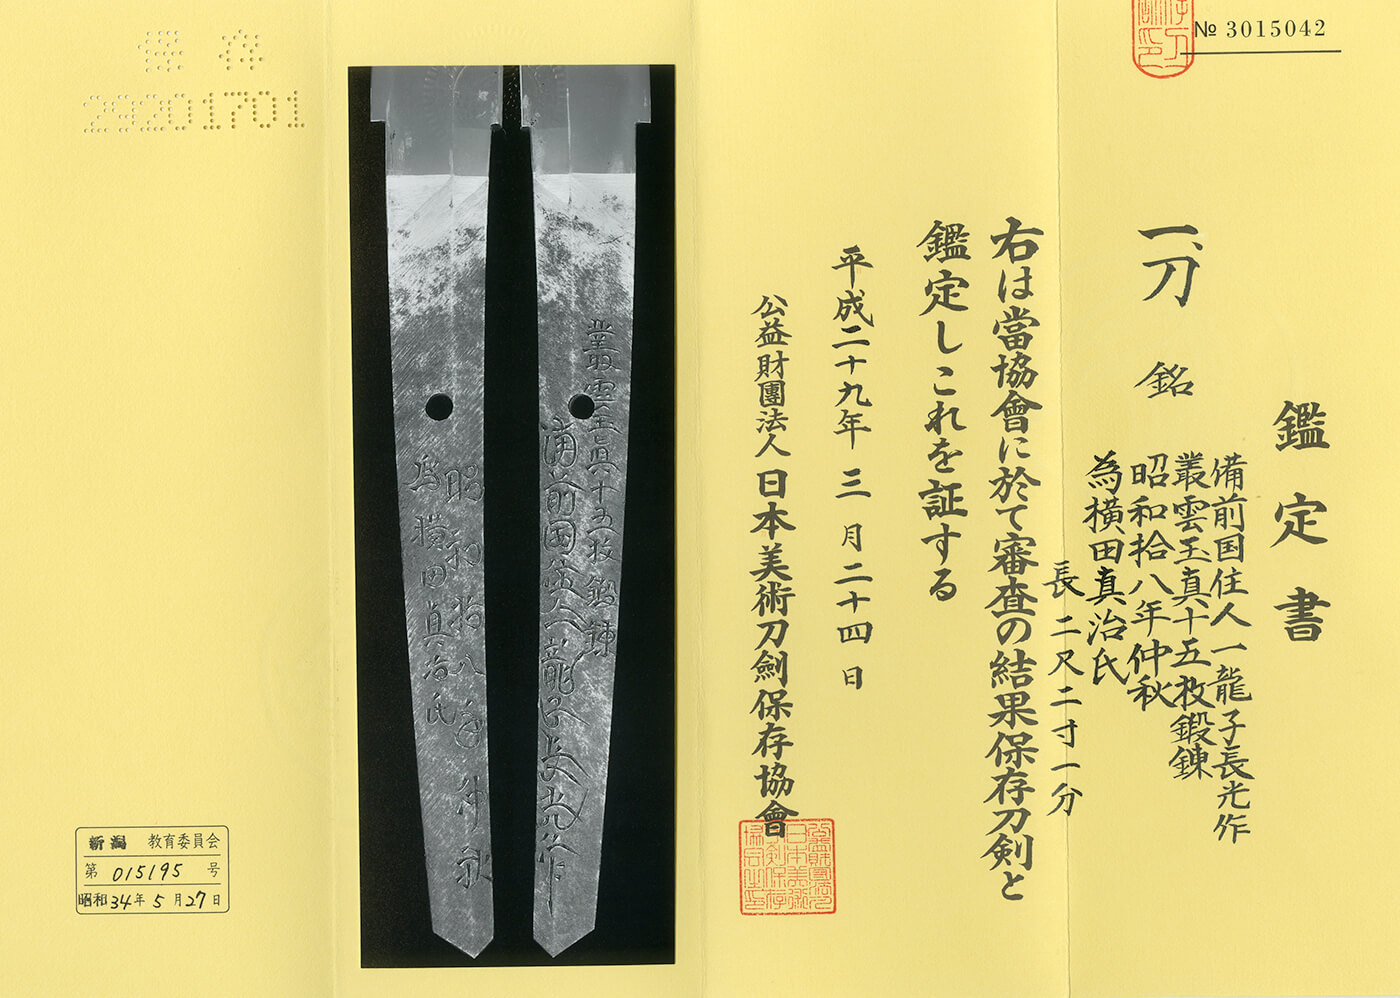 № 3015042
鑑定書
一、刀 銘
備前国住人一龍子長光作
叢雲玉真十五枚鍛錬
昭和拾八年仲秋
為横田真治氏
長二尺二寸一分
右は當協會に於て審査の結果保存刀剣と
鑑定しこれを証する
平成二十九年三月二十四日
公益財團法人日本美術刀劍保存協會
叢雲玉真十五枚鍛錬
備前国住人一龍子長光作
昭和拾八年仲秋
為横田真治氏
保存
29201701
新潟 教育委員会
第 015195 号
昭和34年5月27日